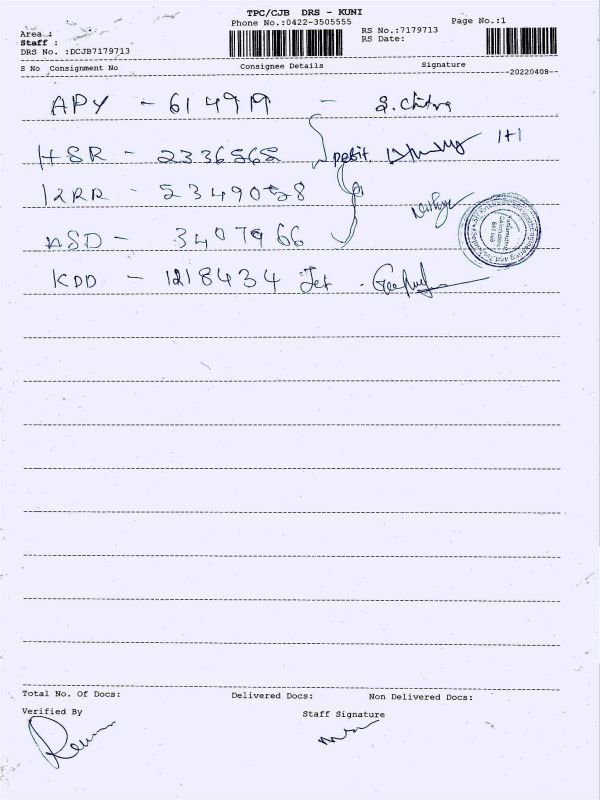 TPC/CJB DRS - KUNI
Phone No.:0422-3505555 Page No.:1
Area :
Staff : RS No.:7179713
DRS No. :DCJB7179713 RS Date:
S No Consignment No Consignee Details Signature
20220408
APY - 614919 - S. Chitra
HSR - 2336568 1+1
- 52349058
NSD - 3407966
KDD - 1218434 Jet
Total No. Of Docs: Delivered Docs: Non Delivered Docs:
Verified By Staff Signature